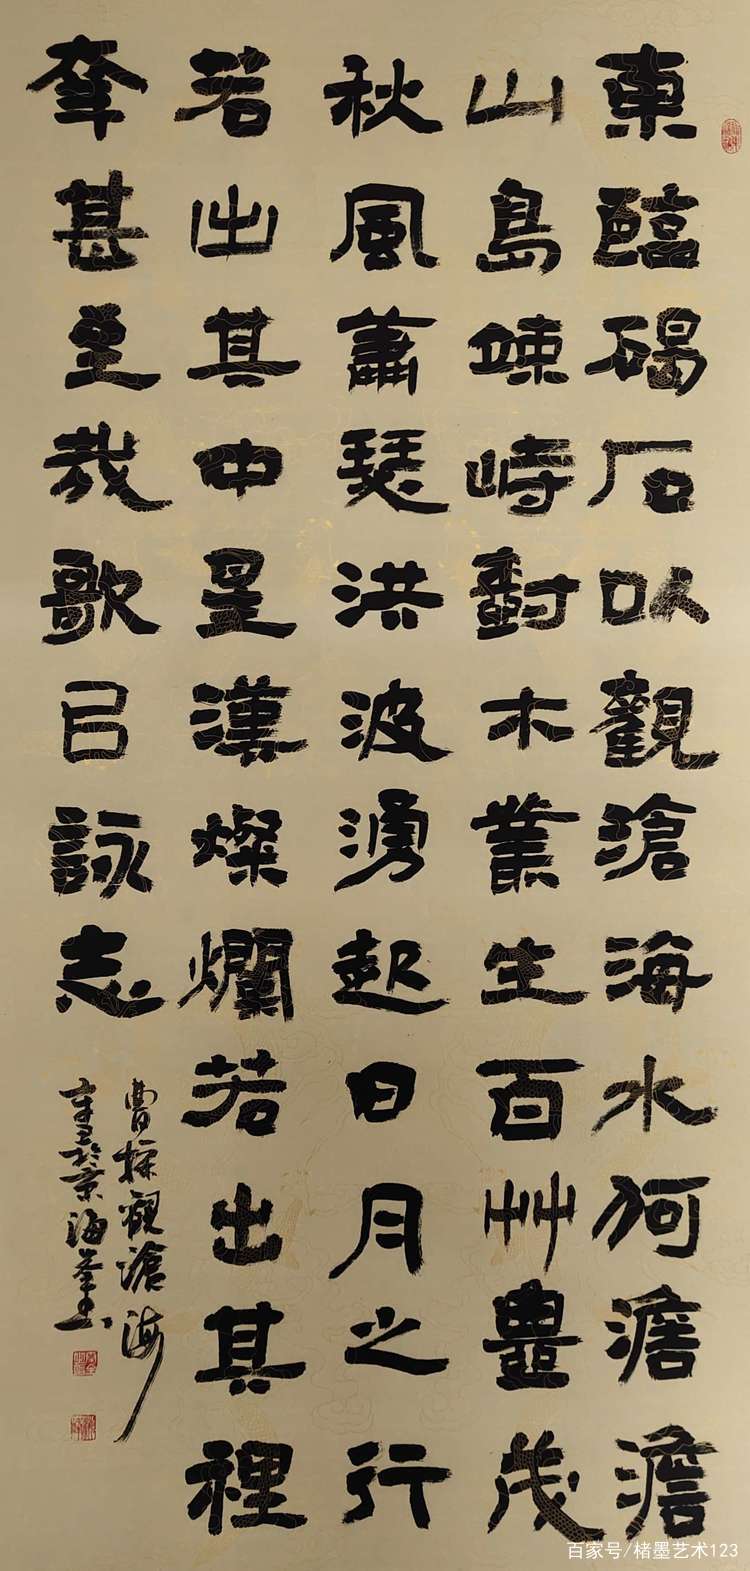 東臨碣石以觀滄海水何澹澹
山島竦峙樹木叢生百艸豐茂
秋風蕭瑟洪波湧起日月之行
若出其中星漢燦爛若出其裡
幸甚至哉歌以詠志
曹操觀滄海
辛丑於京海峯書
百家号/楮墨艺术123